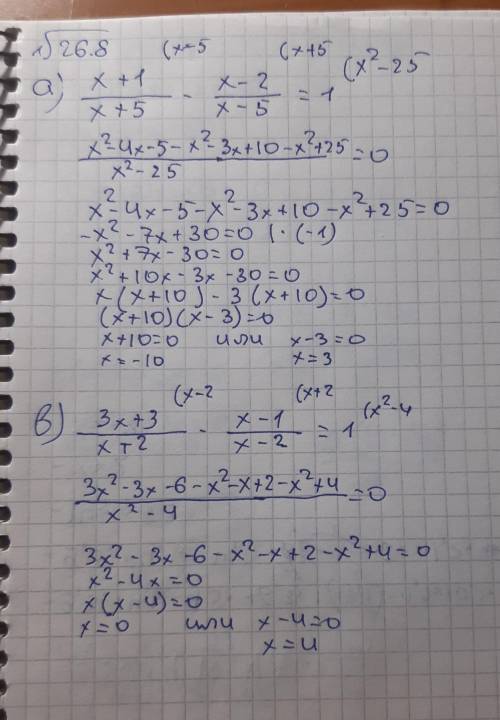 √26.8
(x-5 (x+5 (x²-25
а) x+1/x+5 - x-2/x-5 = 1
x²-4x-5-x²-3x+10-x²+25/x²-25 = 0
x²-4x-5-x²-3x+10-x²+25=0
-x²-7x+30=0 |·(-1)
x²+7x-30=0
x²+10x-3x-30=0
x(x+10)-3(x+10)=0
(x+10)(x-3)=0
x+10=0 или x-3=0
x=-10 x=3
(x-2 (x+2 (x²-4
в) 3x+3/x+2 - x-1/x-2 = 1
3x²-3x-6-x²-x+2-x²+4/x²-4 = 0
3x²-3x-6-x²-x+2-x²+4=0
x²-4x=0
x(x-4)=0
x=0 или x-4=0
x=4